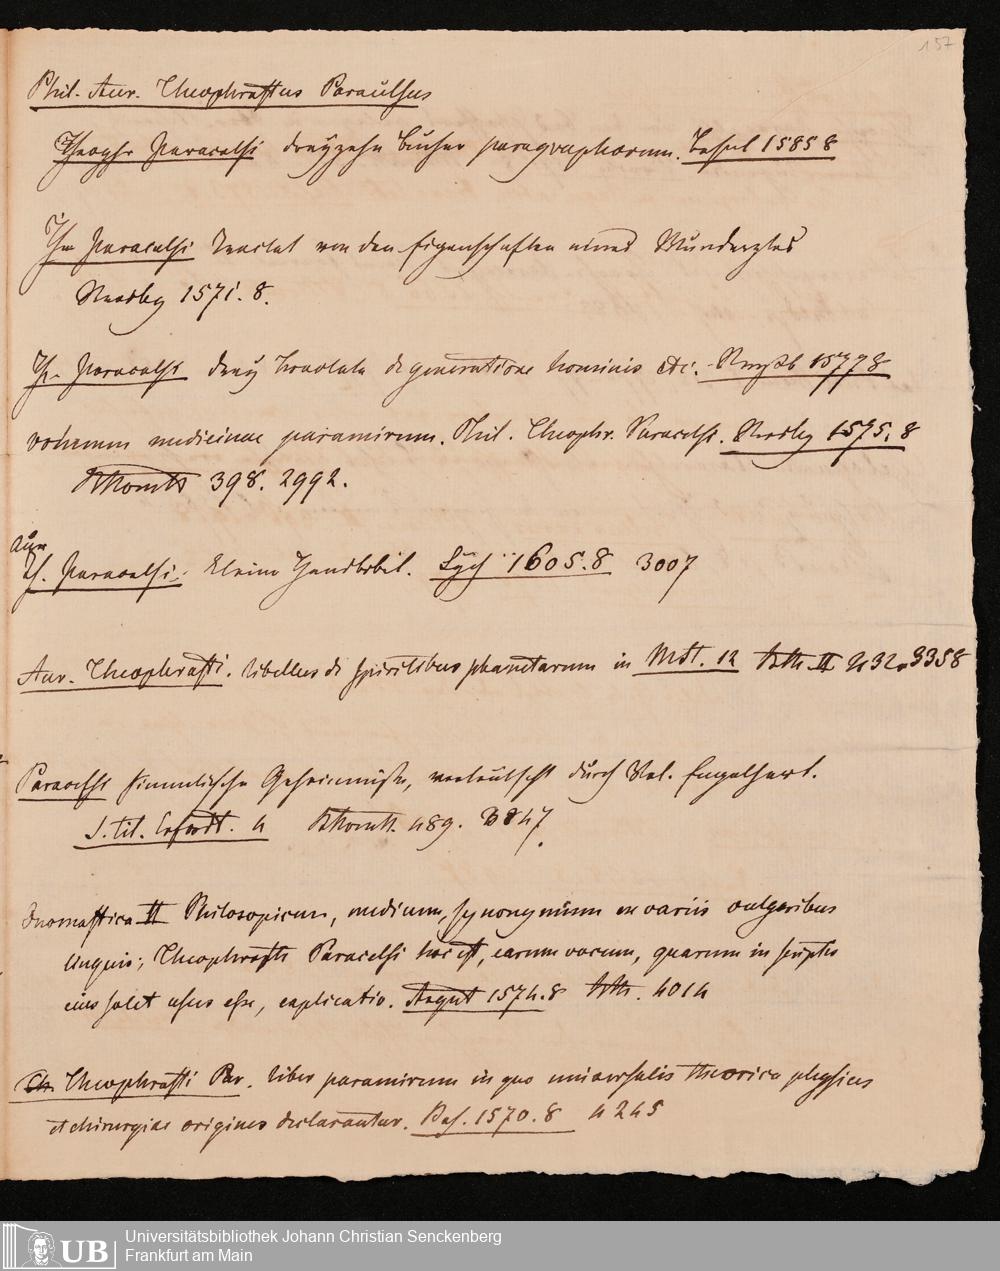 157
Phil. Aur. Theophrastus Paracelsus
Theophr Paracelsi dreyzehn Bücher paragraphorum. Basel 1585 8
Th Paracelsi Tractat von den Eigenschaften eines Wundarztes
1571. 8.
Th. Paracelsi drey Tractate de generatione hominis etc. 1577 8
volumen medicinae paramirum. Phil. Theophr. Paracelsi. 1575. 8
398. 2992.
Aur
Th. Paracelsi kleine Handbibel. 1605. 8 3007
Aur. Theophrasti. libellus de spiritibus planetarum in Mst. 12 3358
Paracelsi himmlische Geheimnisse, verteutscht durch Val. Engelhart.
S. tit. Erfurdt. 4 489. 3847.
Onomastica II Philosopicum, medicum, synonymum ex variis vulgaribus
linguis; Theophrasti Paracelsi hoc est, earum vocum, quarum in scriptis
eius solet usus esse, explicatio. 1574. 8 4014
Theophrasti Par. liber paramirum in quo universalis theorica physicae
et chirurgiae origines declarantur. Bas. 1570. 8 4245
UB
Universitätsbibliothek Johann Christian Senckenberg
Frankfurt am Main